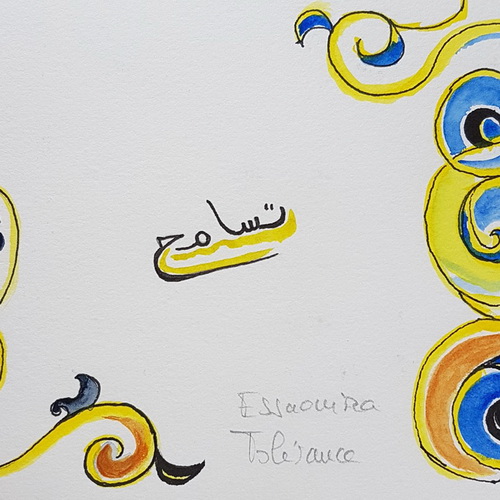 تسامح
Essaouira
Tolérance